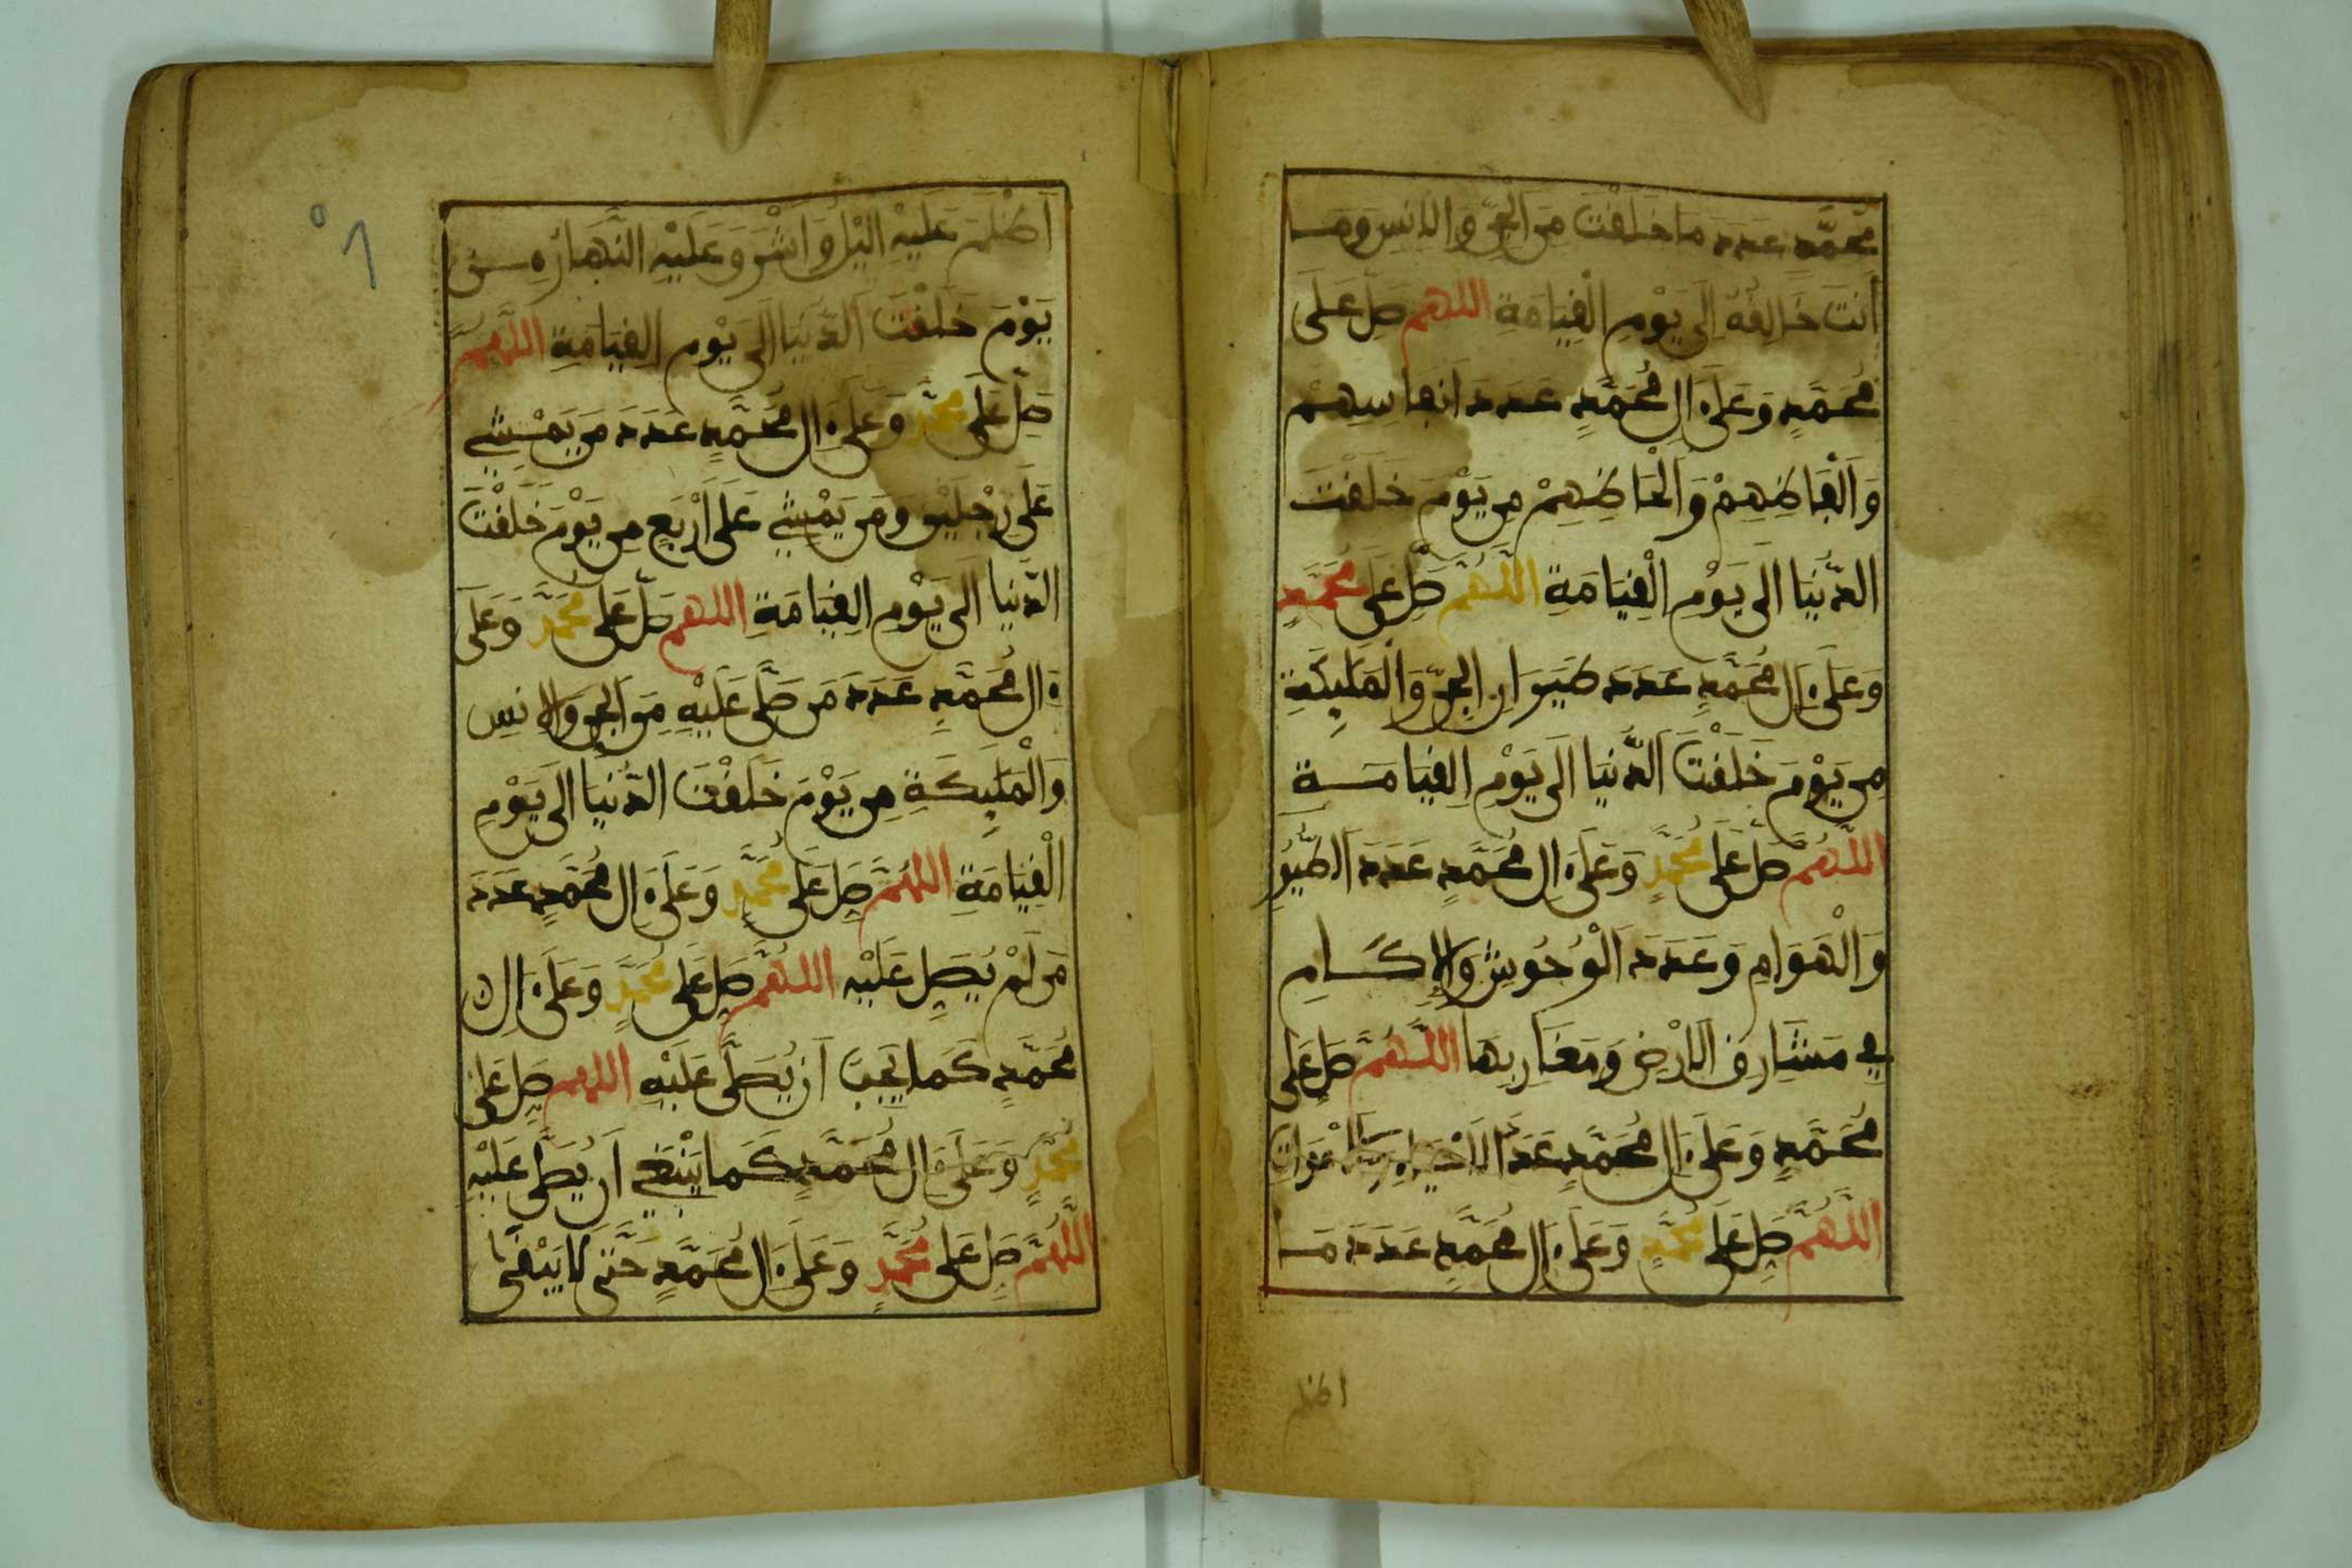 مُحَمَّدٍ عَدَدَ مَا خَلَقْتَ مِنَ الْجِنِّ وَالْإِنْسِ وَمَــا
أَنْتَ خَالِقُهُ إِلَى يَوْمِ الْقِيَامَةِ اللهم صَلِّ عَلَى
مُحَمَّدٍ وَعَلَى ءَالِ مُحَمَّدٍ عَدَدَ أَنْفَاسِهِمْ
وَأَلْفَاظِهِمْ وَأَلْحَاظِهِمْ مِنْ يَوْمِ خَلَقْتَ
الدُّنْيَا إِلَى يَوْمِ الْقِيَامَةِ اللَّهُمَّ صَلِّ عَلَى مُحَمَّدٍ
وَعَلَى ءَالِ مُحَمَّدٍ عَدَدَ طَيَرَانِ الْجِنِّ وَالْمَلَئِكَةِ
مِنْ يَوْمَ خَلَقْتَ الدُّنْيَا إِلَى يَوْمِ الْقِيَامَــةِ
اللَّهُمَّ صَلِّ عَلَى مُحَمَّدٍ وَعَلَى ءَالِ مُحَمَّدٍ عَدَدَ الطُّيُورِ
وَالْهَوَامِ وَعَدَدَ الْوُحُوشِ وَالْإِكَــامِ
فِي مَشَارِقِ الْأَرْضِ وَمَغَارِبِهَا اللَّهُمَّ صَلِّ عَلَى
مُحَمَّدٍ وَعَلَى ءَالِ مُحَمَّدٍ عَدَدَ الْأَحْيَاءِ وَالْأَمْوَاتِ
اللَّهُمَّ صَلِّ عَلَى مُحَمَّدٍ وَعَلَى ءَالِ مُحَمَّدٍ عَدَدَ مَــا
اظلم
٥٦
أَظْلَمَ عَلَيْهِ الَّيْلُ وَأَشْرَقَ عَلَيْهِ النَّهَارُ مِــنْ
يَوْمَ خَلَقْتَ الدُّنْيَا إِلَى يَوْمِ الْقِيَامَةِ اللَّهُمَّ
صَلِّ عَلَى مُحَمَّدٍ وَعَلَى ءَالِ مُحَمَّدٍ عَدَدَ مَنْ يَمْــشِي
عَلَى رِجْلَيْنِ وَمَنْ يَمْشِي عَلَى أَرْبَعٍ مِنْ يَوْمَ خَلَقْتَ
الدُّنْيَا إِلَى يَوْمِ الْقِيَامَةِ اللهم صَلِّ عَلَى مُحَمَّدٍ وَعَلَى
ءَالِ مُحَمَّدٍ عَدَدَ مَنْ صَلَّى عَلَيْهِ مِنَ الْجِنِّ وَالْإِنْسِ
وَالْمَلَئِكَةِ مِنْ يَوْمَ خَلَقْتَ الدُّنْيَا إِلَى يَوْمِ
الْقِيَامَةِ اللَّهُمَّ صَلِّ عَلَى مُحَمَّدٍ وَعَلَى ءَالِ مُحَمَّدٍ عَدَدَ
مَنْ لَمْ يُصَلِّ عَلَيْهِ اللَّهُمَّ صَلِّ عَلَى مُحَمَّدٍ وَعَلَى ءَالِ
مُحَمَّدٍ كَمَا يَجِبُ أَنْ يُصَلَّى عَلَيْهِ اللهم صَلِّ عَلَى
مُحَمَّدٍ وَعَلَى ءَالِ مُحَمَّدٍ كَمَا يَنْبَغِي أَنْ يُصَلَّى عَلَيْهِ
اللَّهُمَّ صَلِّ عَلَى مُحَمَّدٍ وَعَلَى ءَالِ مُحَمَّدٍ حَتَّى لَا يَبْقَى